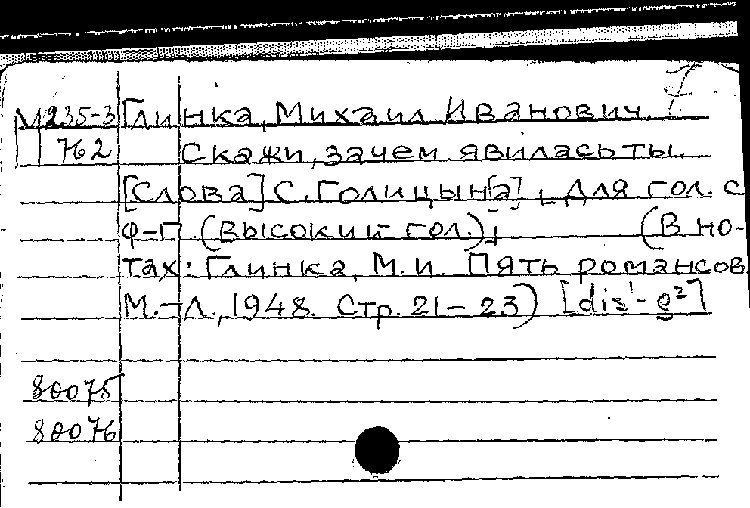 М235-3 Глинка, Михаил Иванович.
762 Скажи, зачем явилась ты.
[Слова] С. Голицын[а], для гол. с
ф-п. (высокий гол.);   (В но-
тах: Глинка, М.И. Пять романсов.
М.-Л., 1948. Стр. 21-23) [dis¹-g²]
80075
80076